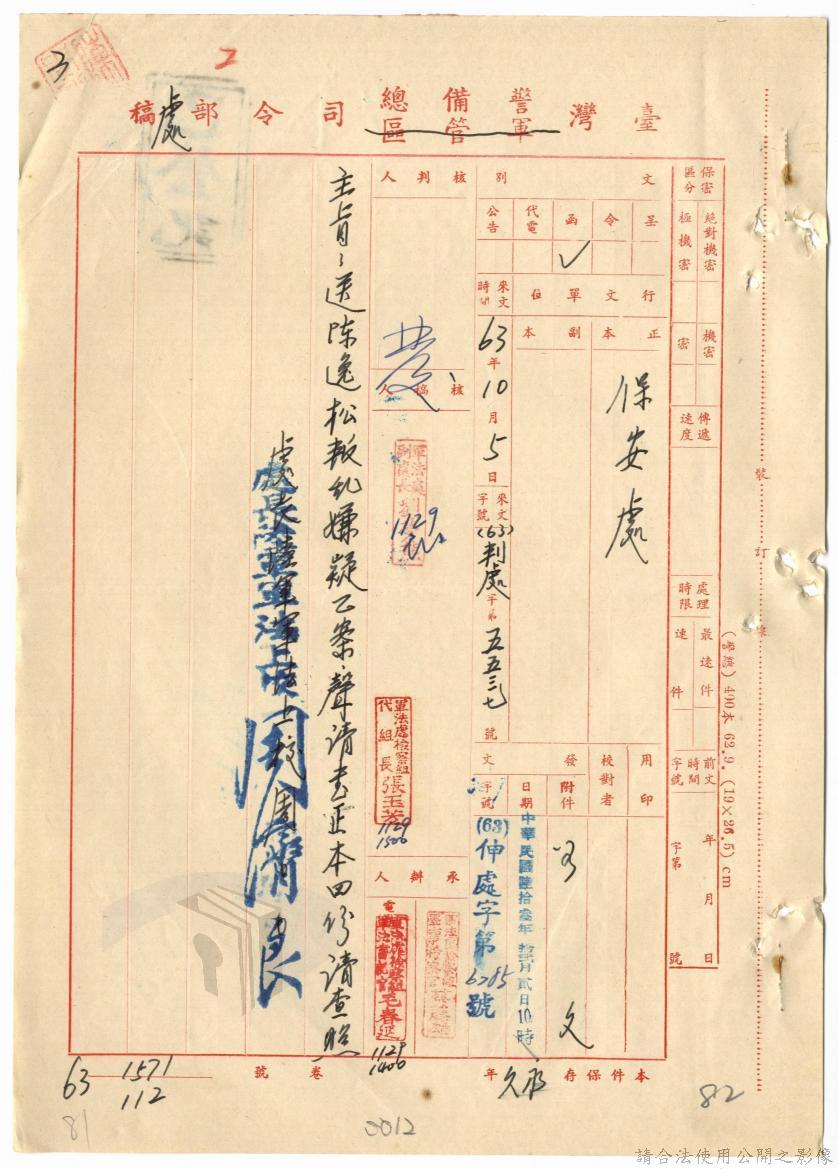 臺灣警備總司令部處稿
軍管區
保密區分
絕對機密
極機密
機密
密
傳遞速度
處理時限
最速件
速件
前文時間字號
年月日
字第
號
裝訂線
(警總)400本 62.9. (19×26.5)cm
文別
呈
令
函
代電
公告
✓
行文單位
正本
副本
保安處
來文時間
63年10月5日
來文字號
(63)判處字第五五三七號
用印
校對者
發文
附件
日期
字號
中華民國陸拾叁年
貳日10時
(63)伸處字第6785號
文
核判人
核稿人
1129
軍法處檢察組
代組長張玉芳
1129
1500
承辦人
電
毛春延
1129
1400
主旨:送陈逸松叛乱嫌疑乙案聲請書正本四份請查照
處長陸軍軍法上校周灂良
本件保存
年
永久
卷
號
63
1571
112
81
0012
82
3
2
請合法使用公開之影像